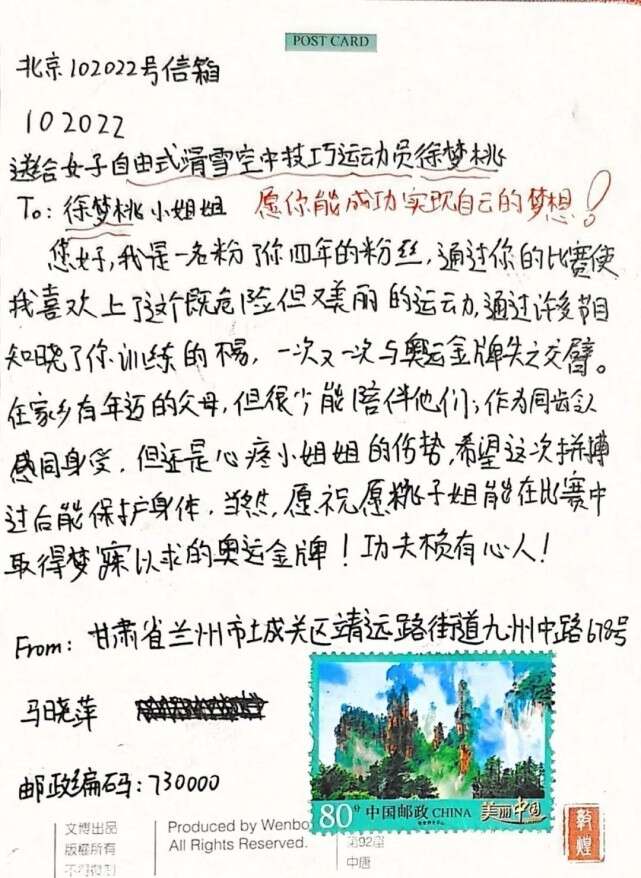 POST CARD
北京102022号信箱
102022
送给女子自由式滑雪空中技巧运动员徐梦桃
To: 徐梦桃小姐姐 愿你能成功实现自己的梦想!
您好,我是一名粉了你四年的粉丝,通过你的比赛使
我喜欢上了这个既危险但又美丽的运动,通过许多节目
知晓了你训练的不易,一次又一次与奥运金牌失之交臂。
在家乡有年迈的父母,但很少能陪伴他们;作为同龄人
感同身受,但还是心疼小姐姐的伤势,希望这次拼搏
过后能保护身体,当然,愿祝愿桃子姐能在比赛中
取得梦寐以求的奥运金牌!功夫不负有心人!
From: 甘肃省兰州市城关区靖远路街道九州中路678号
马晓萍
邮政编码:730000
80分 中国邮政 CHINA 美丽中国
敦煌
文博出品
版權所有
不得複制
Produced by Wenbo.
All Rights Reserved.
第92窟
中唐